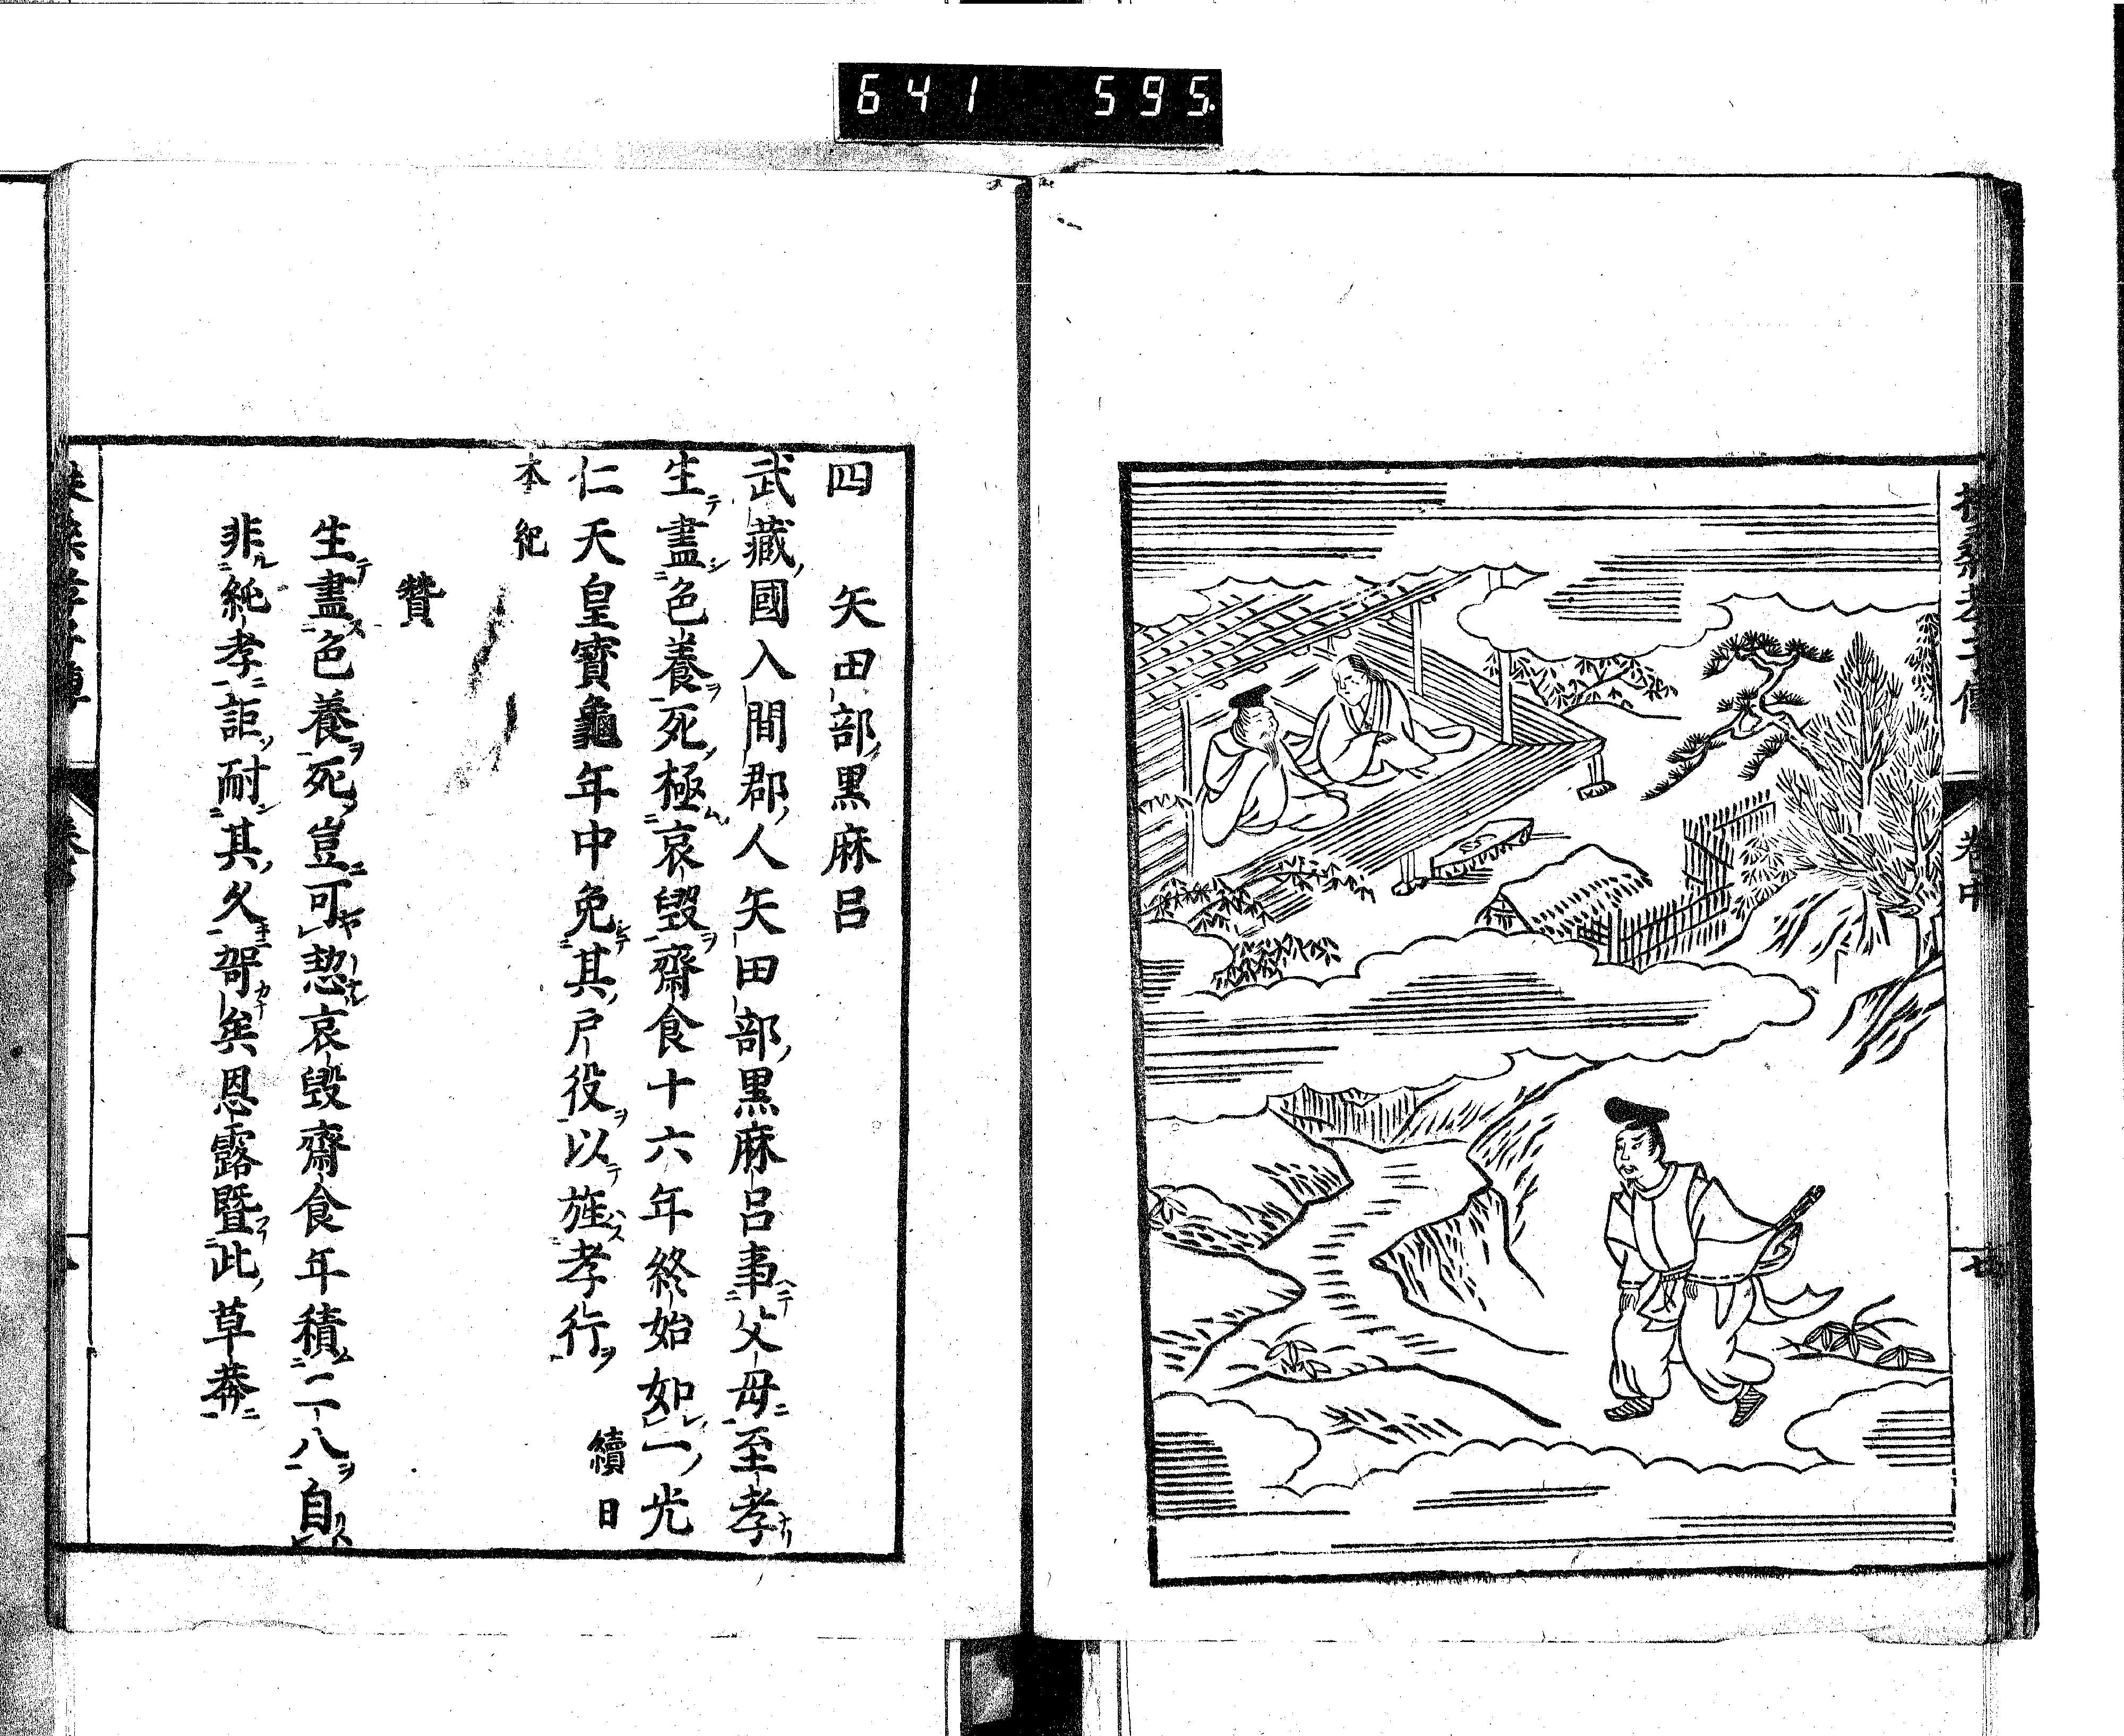 641 595.
卷中
七
四 矢田部黒麻呂
武藏國入間郡人矢田部黒麻呂事父母至孝
生盡色養死極哀毀齋食十六年終始如一光
仁天皇寶龜年中免其戸役以旌孝行 續日
本紀
賛
生盡色養死豈可愸哀毀齋食年積二八自
非純孝詎耐其久哿矣恩露曁此草莽